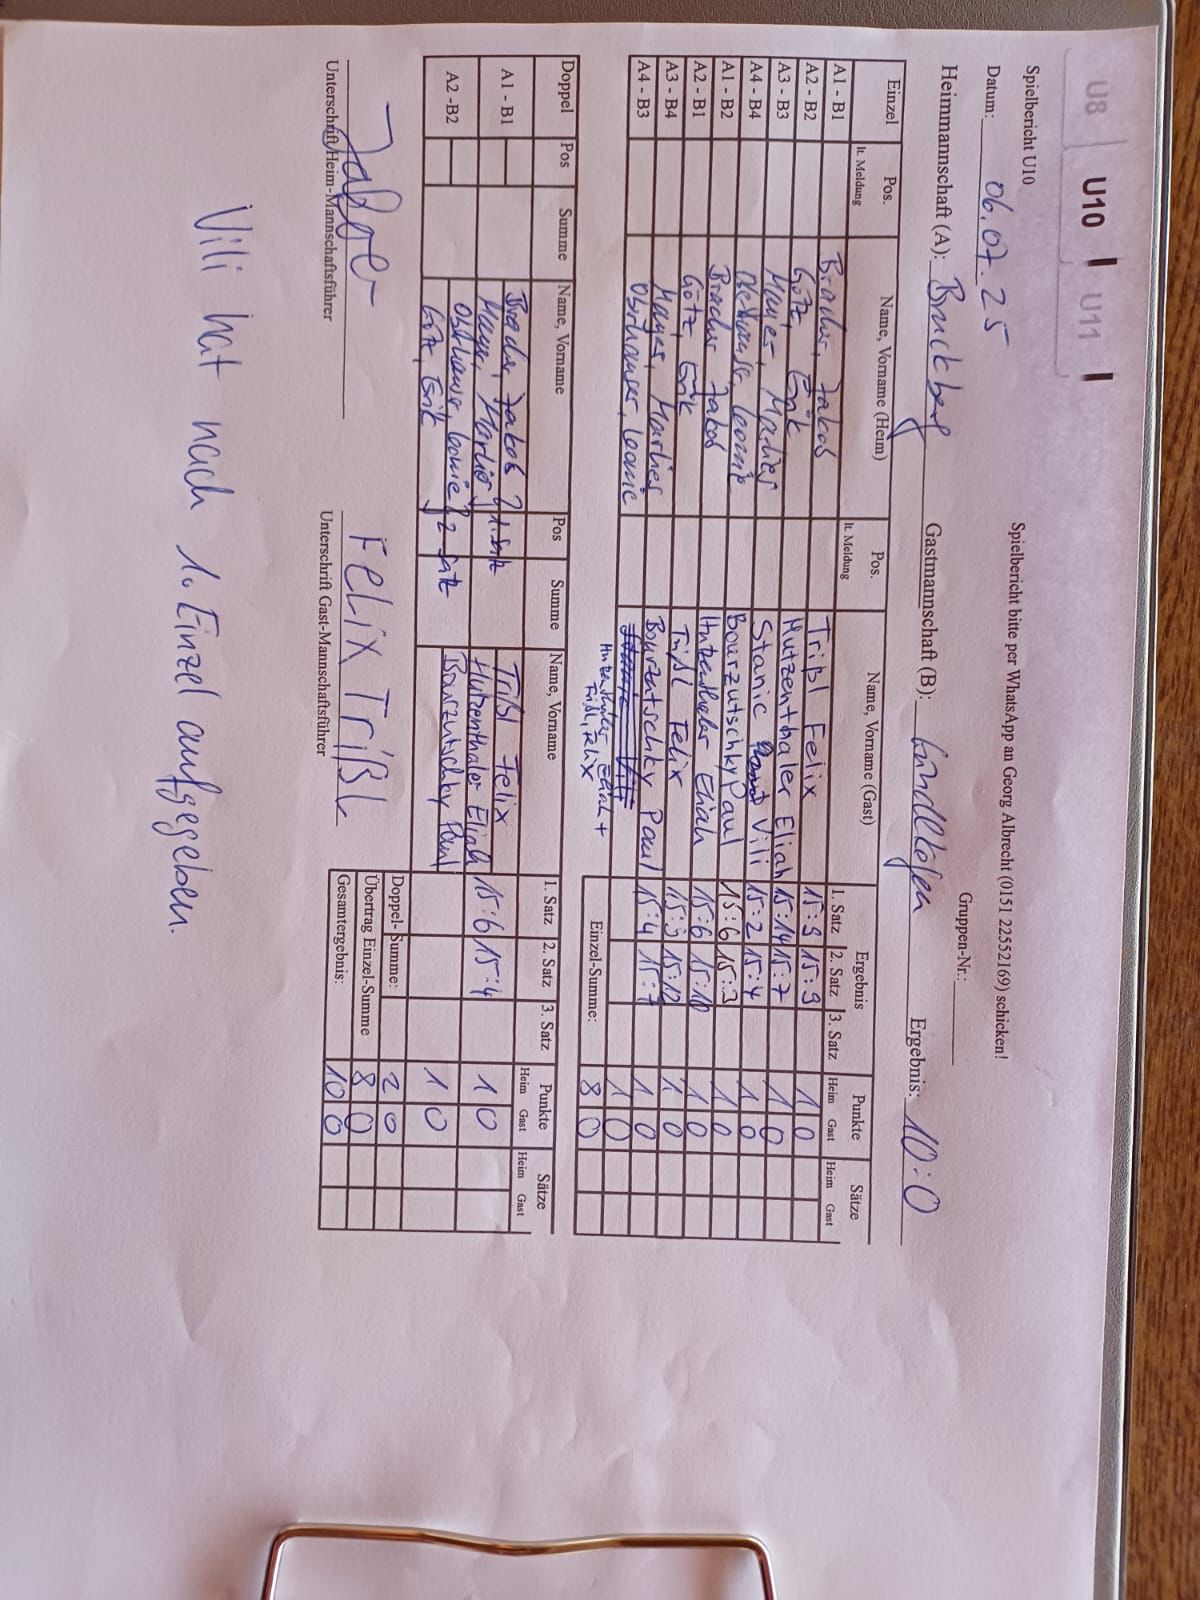 U8 U10 U11
Spielbericht U10
Spielbericht bitte per WhatsApp an Georg Albrecht (0151 22552169) schicken!
Datum: 06.07.25
Gruppen-Nr.:
Heimmannschaft (A): Bruckberg Gastmannschaft (B): Gündlkofen Ergebnis: 10:0
Einzel Pos. lt. Meldung Name, Vorname (Heim) Pos. lt. Meldung Name, Vorname (Gast) Ergebnis Punkte Sätze
1. Satz 2. Satz 3. Satz Heim Gast Heim Gast
A1 - B1 Jakob Trißl Felix 15:9 15:9 1 0
A2 - B2 Götz, Erik Hutzenthaler Eliah 15:14 15:7 1 0
A3 - B3 Marlies Stanic Vili 15:2 15:4 1 0
A4 - B4 Leonie Bourzutschky Paul 15:6 15:3 1 0
A1 - B2 Jakob Eliah 15:6 15:10 1 0
A2 - B1 Götz, Erik Trißl Felix 15:9 15:12 1 0
A3 - B4 Marlies Bourzutschky Paul 15:4 15:7 1 0
A4 - B3 Leonie 1 0
Eliah +
Trißl, Felix
Einzel-Summe: 8 0
Doppel Pos Summe Name, Vorname Pos Summe Name, Vorname 1. Satz 2. Satz 3. Satz Punkte Sätze
Heim Gast Heim Gast
A1 - B1 Jakob 1. Satz Trißl Felix 15:6 15:4 1 0
Marlies Hutzenthaler Eliah
A2 -B2 Leonie 2. Satz Bourzutschky Paul 1 0
Götz, Erik
Doppel-Summe: 2 0
Übertrag Einzel-Summe 8 0
Gesamtergebnis: 10 0
Felix Trißl
Unterschrift Heim-Mannschaftsführer Unterschrift Gast-Mannschaftsführer
Vili hat nach 1. Einzel aufgegeben.